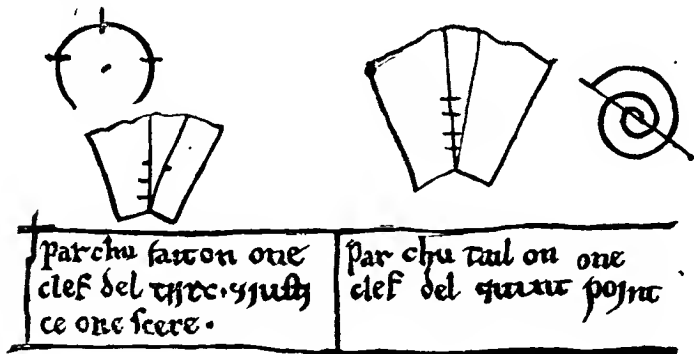 par chu fait on one
clef del tirc. ⁊ iusti
ce one scere.
par chu tail on one
clef del quint point